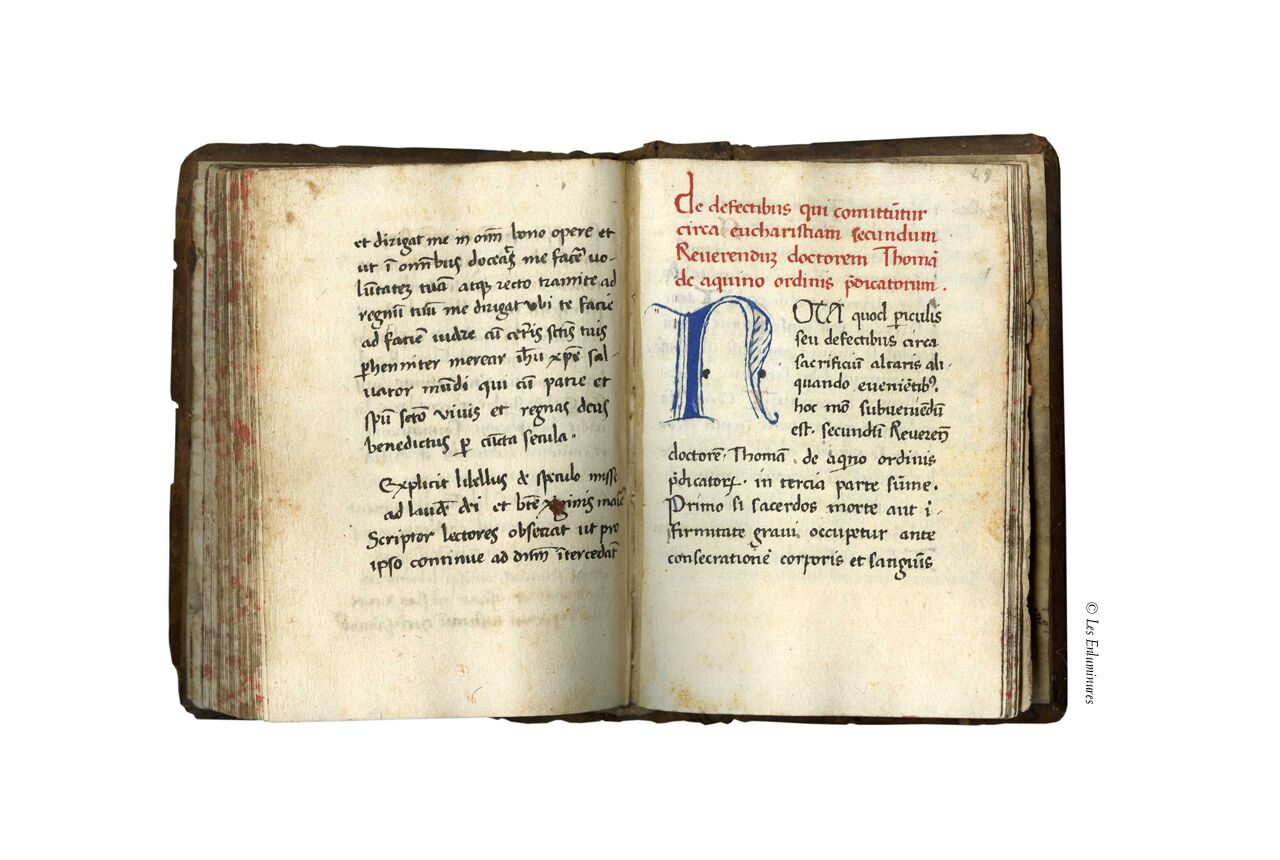 et dirigat me in om̄ bono opere et
ut ī om̄ibus doceas me facē uo-
lūtateʒ tuā atqʒ recto tramite ad
regnū tuū me dirigat vbi te facie
ad faciē uidre cū ceteris sctis tuis
phenniter merear ihū xpē sal-
uator mūdi qui cū patre et
spū sctō viuis et regnas deus
benedictus p cūcta secula.
Explicit libellus de speculo misse
ad laudē dei et btē virginis
Scriptor lectores obsecrat ut pro
ipso continue ad dnm̄ ītercedāt
49
De defectibus qui comittūtur
circa eucharistiam secundum
Reuerenduʒ doctorem Thomā
de aquino ordinis p̄dicatorum.
NOTA quod piculis
seu defectibus circa
sacrificiū altaris ali-
quando eueniētibꝰ.
hoc mō subueniēdū
est. secundū Reuerēn
doctorē Thomā de aqino ordinis
p̄dicatorꝝ. in tercia parte sūme.
Primo si sacerdos morte aut ī-
firmitate graui occupetur ante
consecrationē corporis et sanguis
© Les Enluminures